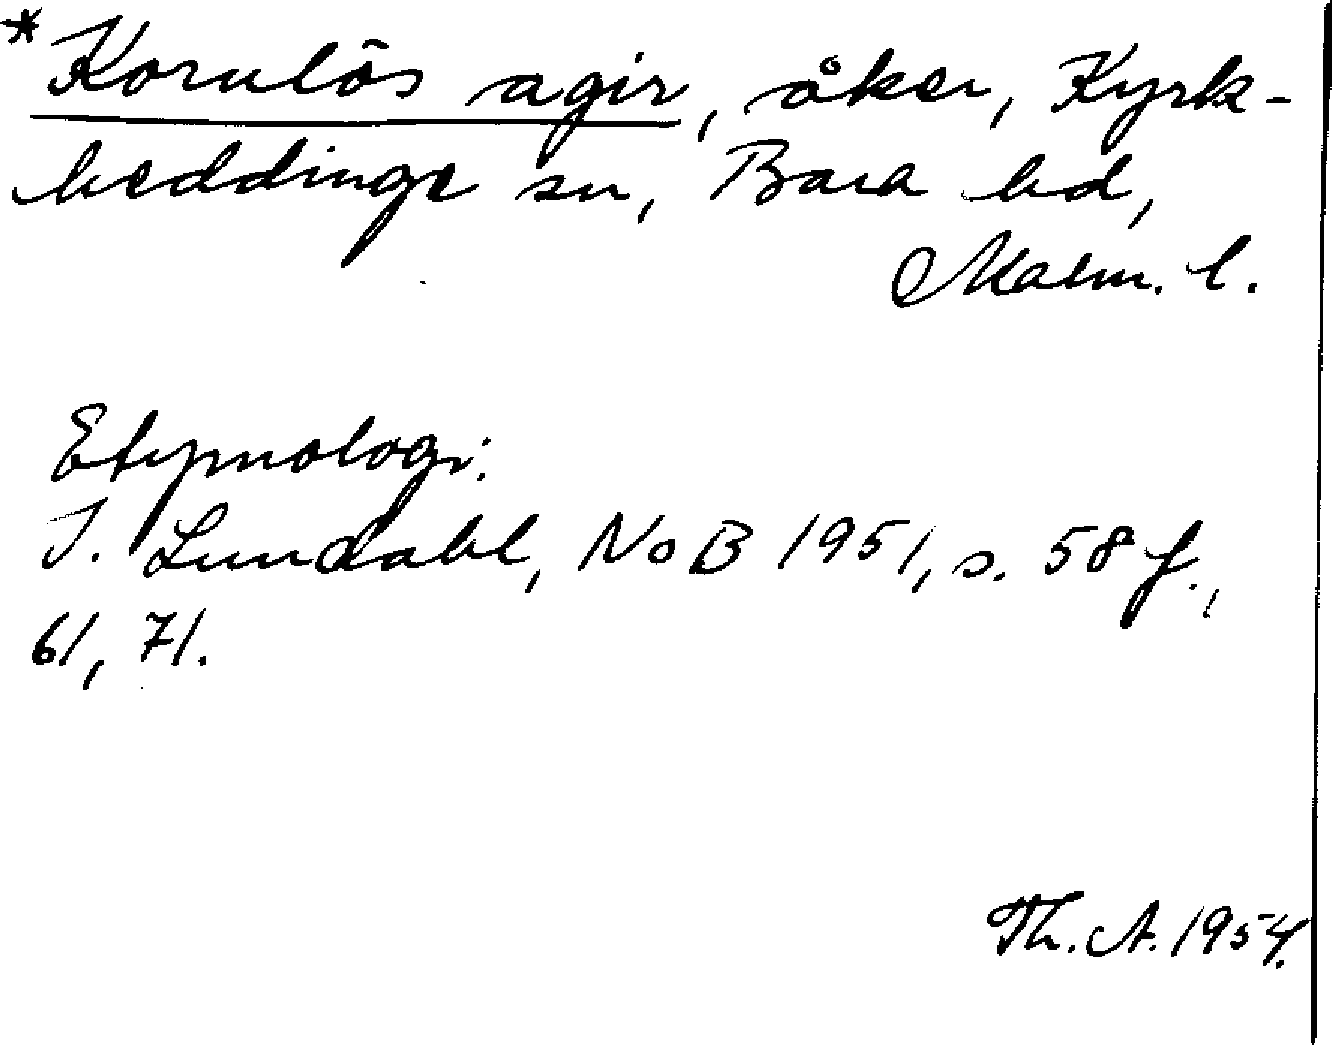 *Kornlös agir, åker, Kyrk-
heddinge sn, Bara hd,
Malm. l.
Etymologi:
I. Lundahl, NoB 1951, s. 58 f.,
61, 71.
Th. A. 1954.